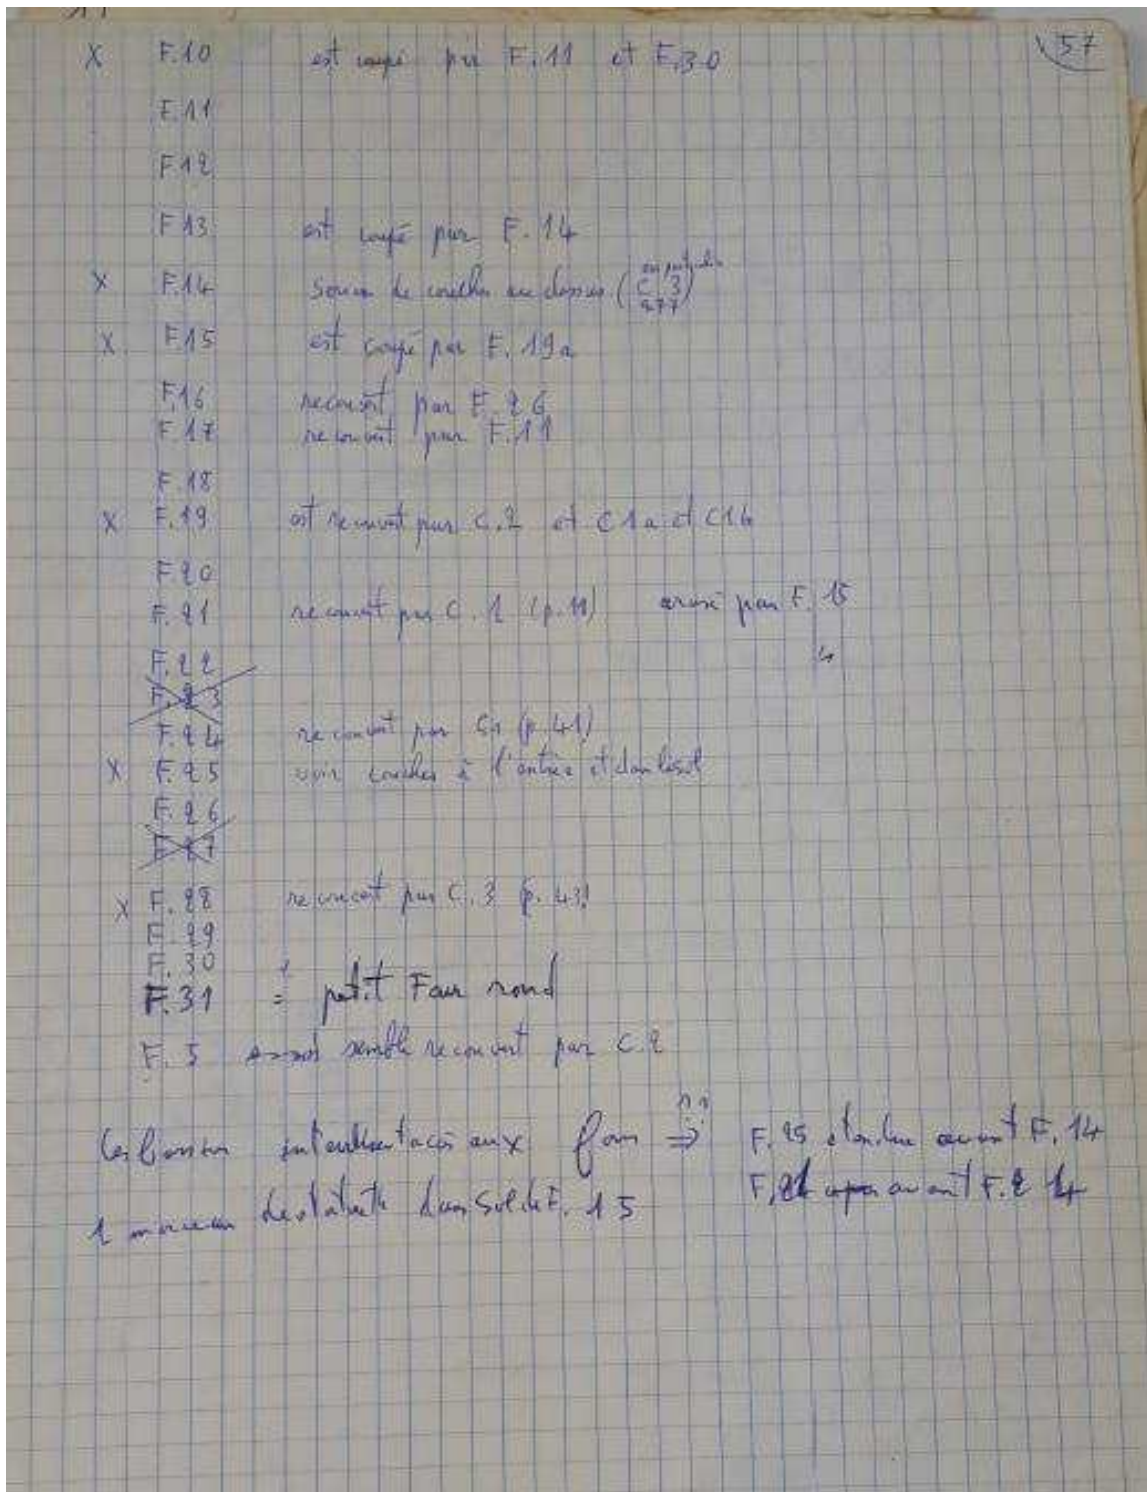 57
X F.10 est coupé par F.11 et F.30
F.11
F12
F13 est coupé par F.14
X F.14 de couches au dessus (C 3)
X F.15 est coupé par F.19a
F.16 recouvert par F.26
F.17 recouvert par F.11
F.18
X F.19 est recouvert par C.2 et C1a et C1b
F.20
F.21 recouvert par C.1 (p.11) par F.15
4
F.22
F.23
F.24 recouvert par (p.41)
X F.25 voir couches à l'entrée et dans le sol
F.26
F.27
X F.28 recouvert par C.3 (p.43)
F.29
F.30
F.31 = petit Four rond
F.5 semble recouvert par C.2
Les accès aux fours ⇒ F.25 avant F.14
1 morceau de dans sol de F.15 avant F.